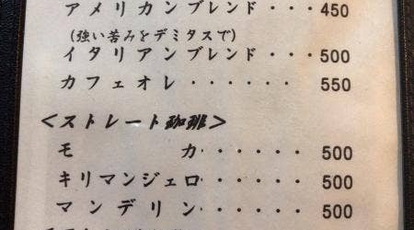 アメリカンブレンド・・・450
(強い苦みをデミタスで)
イタリアンブレンド・・・500
カフェオレ・・・・・・550
＜ストレート珈琲＞
モカ・・・・・・500
キリマンジェロ・・・・・・500
マンデリン・・・・・・500